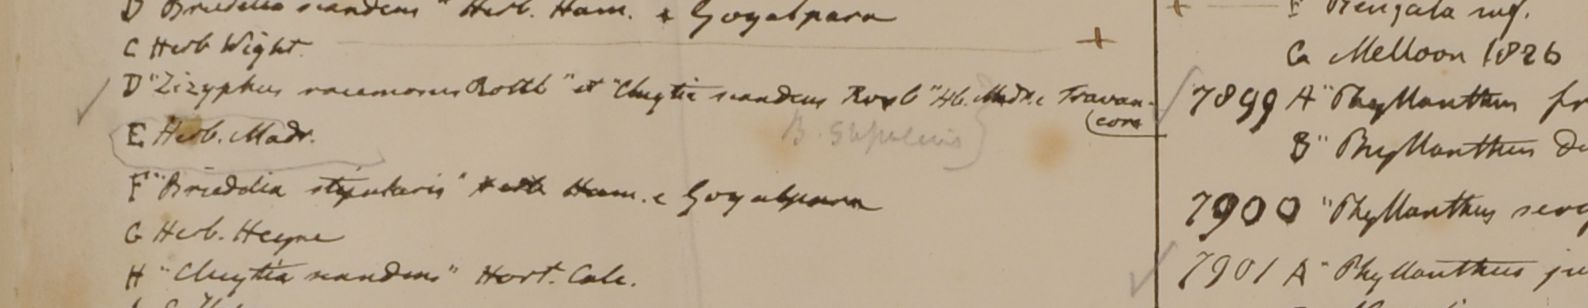 D "Briedelia scandens" Herb. Ham. e Goyalpara
C Herb Wight
D "Zizyphus racemosus Roth" et "Cluytia scandens Roxb" Hb. Madr. e Travan-
(core
B. stipularis
E Herb. Madr.
F "Briedelia stipularis" Herb. Ham. e Goyalpara
G Herb. Heyne
H "Cluytia scandens" Hort. Calc.
F Bengala
G Melloon 1826
7899 A "Phyllanthus
B "Phyllanthus
7900 "Phyllanthus
7901 A "Phyllanthus